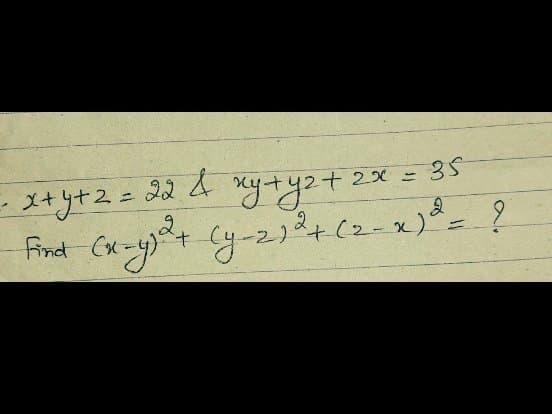 x+y+z = 22 & xy+yz+zx = 35
Find (x-y)²+(y-z)²+(z-x)² = ?